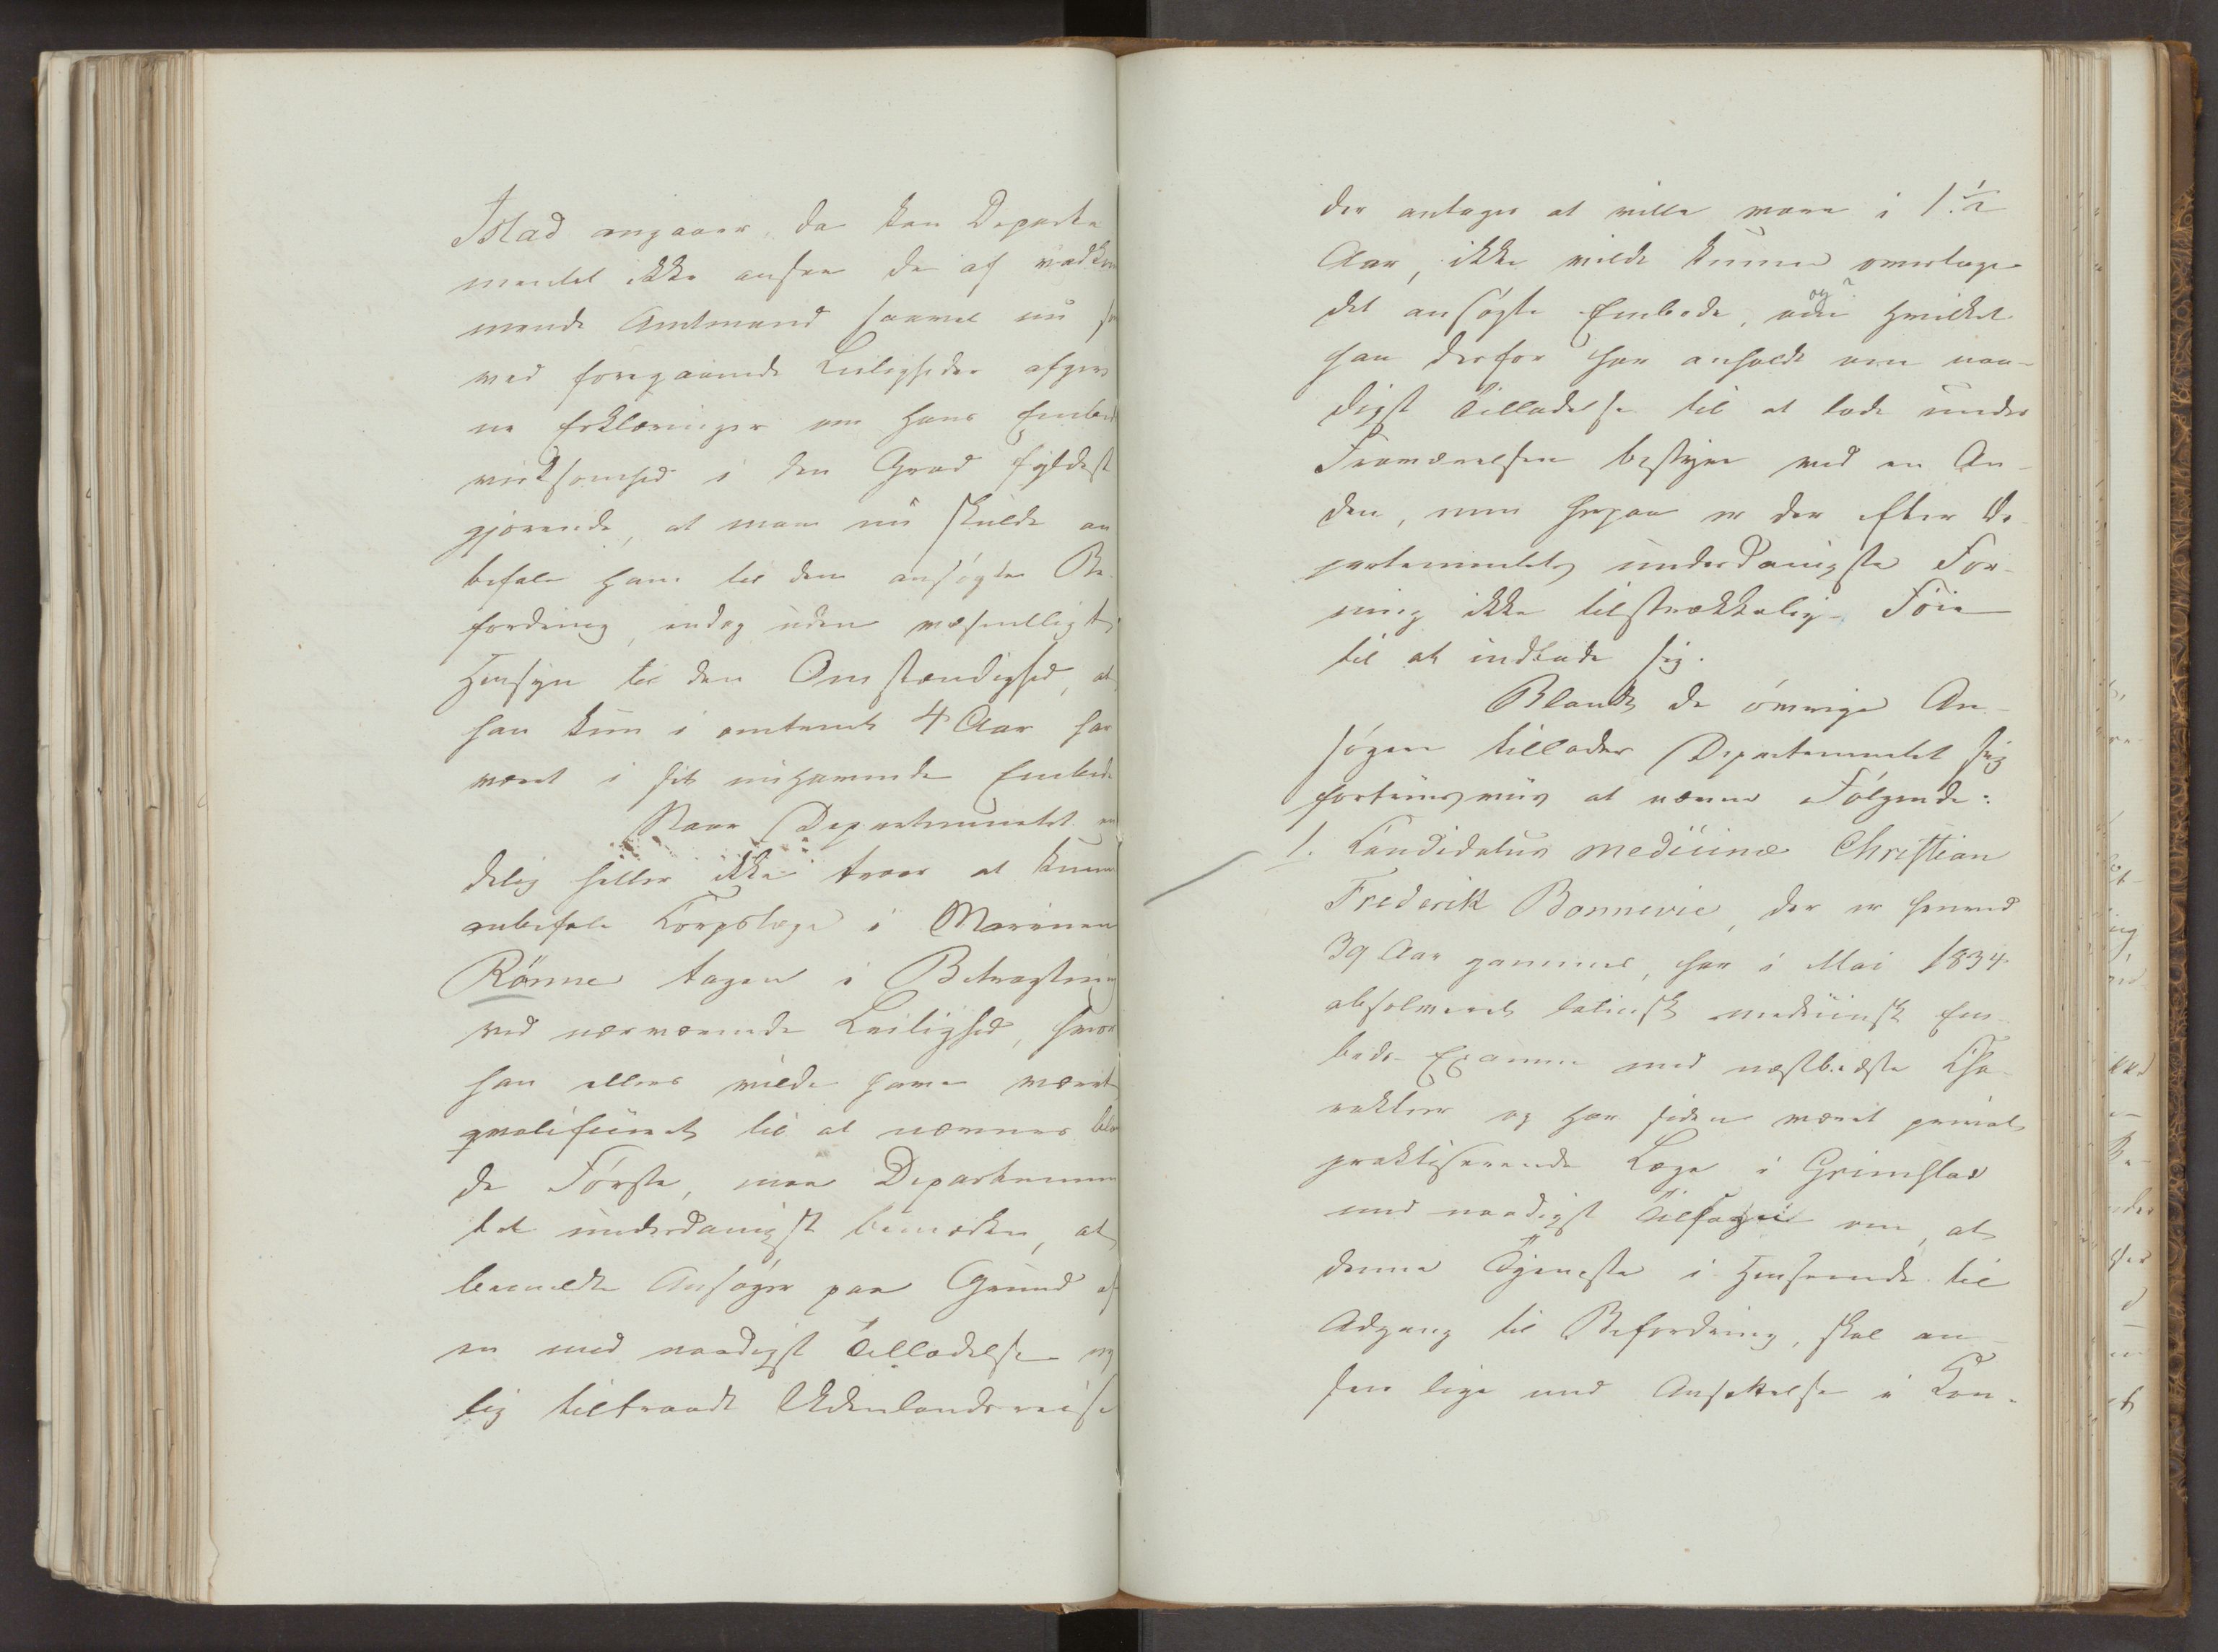 Istad angaaer, da kan Departe
mentet ikke ansee de af vedkom
mende Amtmand saavel nu som
ved foregaaende Leiligheder afgiv
ne Erklæringer om hans Embeds
virksomhed i den Grad fyldest
gjørende, at man nu skulde an
befale ham til den ansøgte Be-
fordring, endog uden væsentligt
Hensyn til den Omstændighed, at
han kun i omtrent 4 Aar har
været i sit nuhavende Embede
Naar Departementet en
delig heller ikke troer at kunne
anbefale Korpslæge i Marinen
Rönne tagen i Betragtning
ved nærværende Leilighed, hvor
han ellers vilde have været
qvalificeret til at nævnes bla
de Første, maa Departemen
tet underdanigst bemærke, at
bemeldte Ansøger paa Grund af
en med naadigst Tilladelse ny
lig tiltraadt Udenlandsreise
der antages at ville vare i 1 1/2
Aar, ikke vilde kunne overtage
det ansøgte Embede, og hvilket
han derfor har anholdt om naa-
digst Tilladelse til at lade under
Fraværelsen bestyre ved en An-
den, men herpaa er der efter De-
partementets underdanigste For-
mening ikke tilstrækkelig Föie
til at indlade sig.
Blandt de øvrige An-
søgere tillader Departementet sig
fortrinsviis at nævne Følgende:
1. Kandidatus medicinæ Christian
Frederik Bonnevie, der er henved
39 Aar gammel, har i Mai 1834
absolveret latinsk medicinsk Em-
beds-Examen med næstbedste Cha-
rakteer og har siden været privat
praktiserende Læge i Grimstad
med naadigst Tilsagn om, at
denne Tjeneste i Henseende til
Adgang til Befordring, skal an-
sees lige med Ansættelse i Kon-